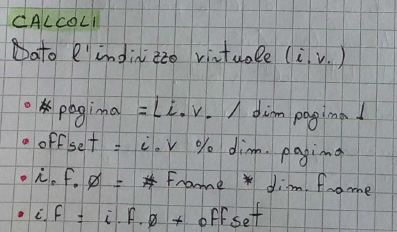 CALCOLI
Dato l'indirizzo virtuale (i.v.)
• # pagina = ⌊i.v. / dim pagina⌋
• offset = i.v % dim. pagina
• i.f.Ø = # frame * dim. frame
• i.f = i.f.Ø + offset